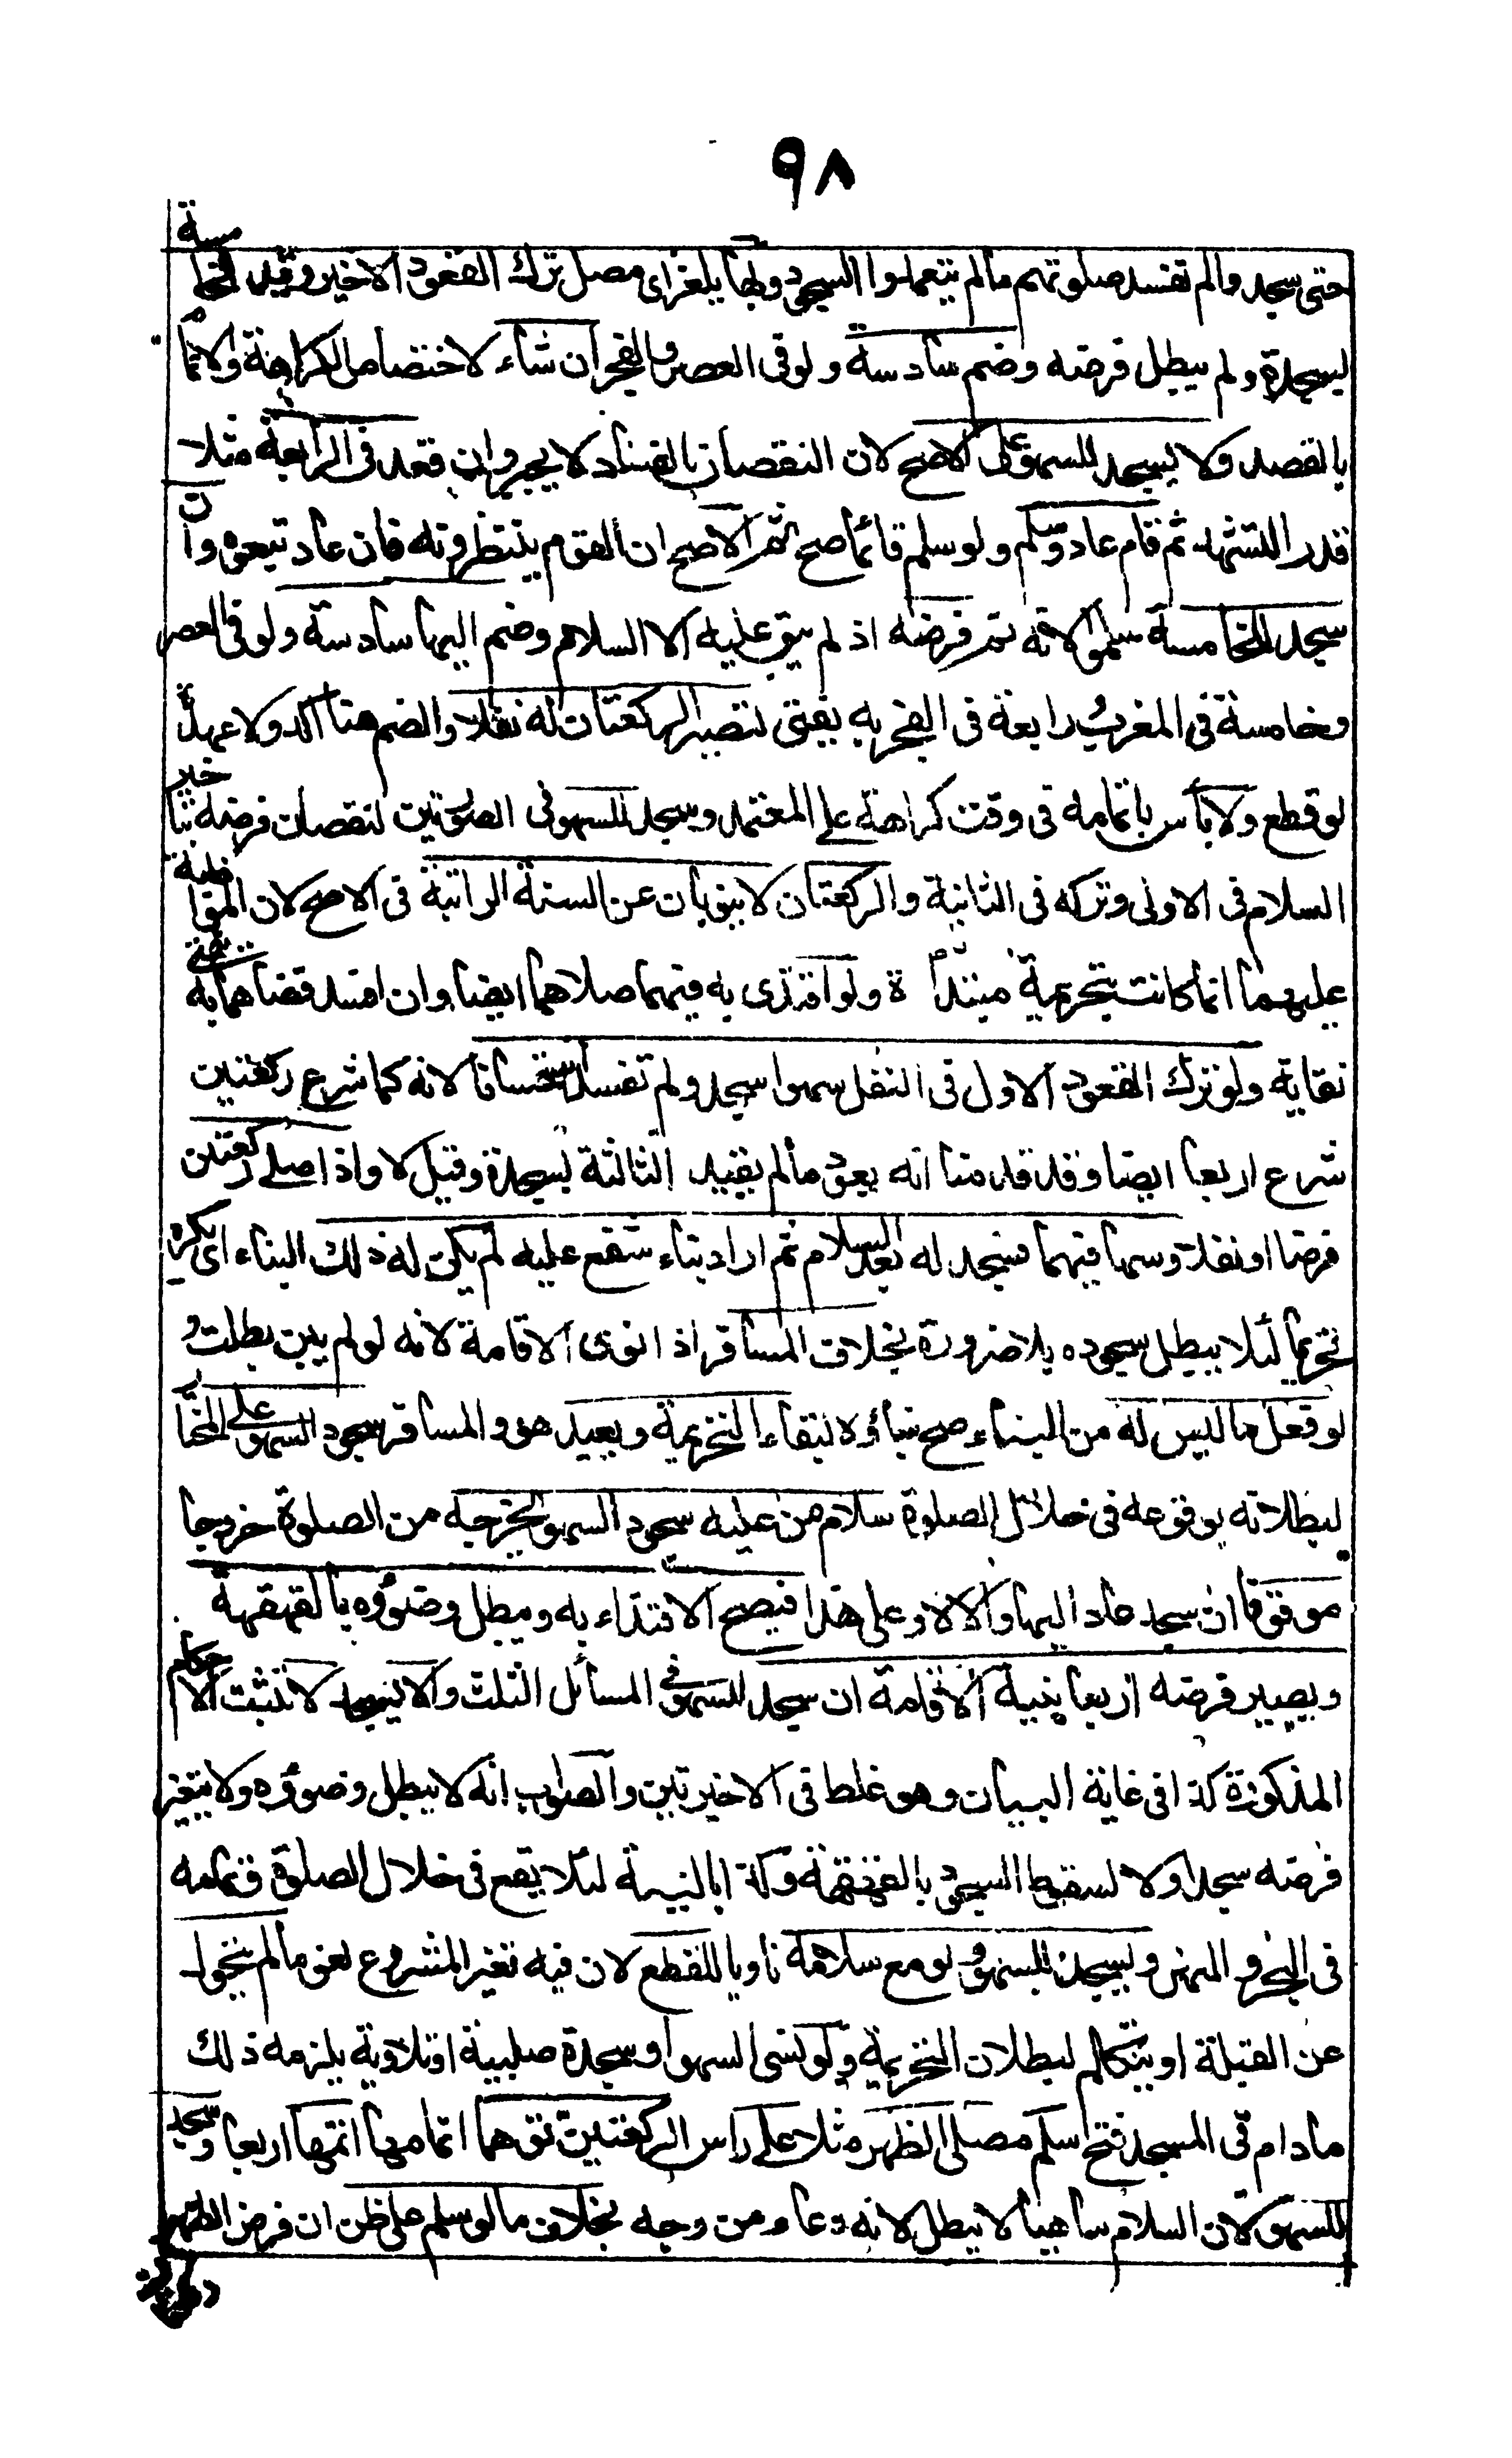 ٩٨
حتى سجد والم تفسد صلوتهم مالم يتعمدوا السجود ولهذا يلغز اى مصل ترك القعود الاخير وقيد الخامسة
بسجدة ولم يبطل فرضه وضم سادسة ولو فى العصر والفجر ان شاء لاختصاص الكراهة والاتمام
بالقصد ولا يسجد للسهو على الاصح لان النقصان بالفساد لا يجبر وان قعد فى الرابعة مثلا
قدر التشهد ثم قام عاد وسلم ولو سلم قائما صح ثم الاصح ان القوم ينتظرونه فان عاد تبعوه وان
سجد للخامسة سلموا لانه تم فرضه اذ لم يبق عليه الا السلام وضم اليها سادسة ولو فى العصر
وخامسة فى المغرب ورابعة فى الفجر به يفتى لتصير الركعتان له نفلا والضم هنا اكد ولا عهدة
لو قطع ولا باس باتمامه فى وقت كراهة على المعتمد وسجد للسهو فى الصورتين لنقصان فرضه بتاخير
السلام فى الاولى وتركه فى الثانية والركعتان لا ينوبان عن السنة الراتبة فى الاصح لان المواظبة
عليهما انما كانت بتحريمة مبتداة ولو اقتدى به فيهما صلاهما ايضا وان افسد قضاهما به يفتى
نقاية ولو ترك القعود الاول فى النفل سهوا سجد ولم تفسد استحسانا لانه كما شرع ركعتين
شرع اربعا ايضا وقد قدمنا انه يعود مالم يقيد الثالثة بسجدة وقيل لا واذا صلى ركعتين
فرضا او نفلا وسها فيهما فسجد له بعد السلام ثم اراد بناء شفع عليه لم يكن له ذلك البناء اى يكره
تحريما لئلا يبطل سجوده بلا ضرورة بخلاف المسافر اذا نوى الاقامة لانه لو لم يبن بطلت و
لو فعل ما ليس له من البناء صح بناؤه لبقاء التحريمة ويعيد هو والمسافر سجود السهو على المختار
لبطلانه بوقوعه فى خلال الصلوة سلام من عليه سجود السهو يخرجه من الصلوة خروجا
موقوفا ان سجد عاد اليها والا لا وعلى هذا فيصح الاقتداء به ويبطل وضوؤه بالقهقهة
ويصير فرضه اربعا بنية الاقامة ان سجد للسهو فى المسائل الثلث والا يسجد لا تثبت الاحكام
المذكورة كذا فى غاية البيان وهو غلط فى الاخيرتين والصواب انه لا يبطل وضوؤه ولا يتغير
فرضه سجد اولا لسقوط السجود بالقهقهة وكذا بالنية لئلا يقع فى خلال الصلوة وتمامه
فى البحر والنهر ويسجد للسهو ولو مع سلامه ناويا للقطع لان نية تغير المشروع لغو مالم يتحول
عن القبلة او يتكلم لبطلان التحريمة ولو نسى السهو او سجدة صلبية او تلاوية يلزمه ذلك
مادام فى المسجد فتح سلم مصلى الظهر مثلا على راس الركعتين توهما اتمامها اتمها اربعا وسجد
للسهو لان السلام ساهيا لا يبطل لانه دعاء من وجه بخلاف مالو سلم على ظن ان فرض الظهر